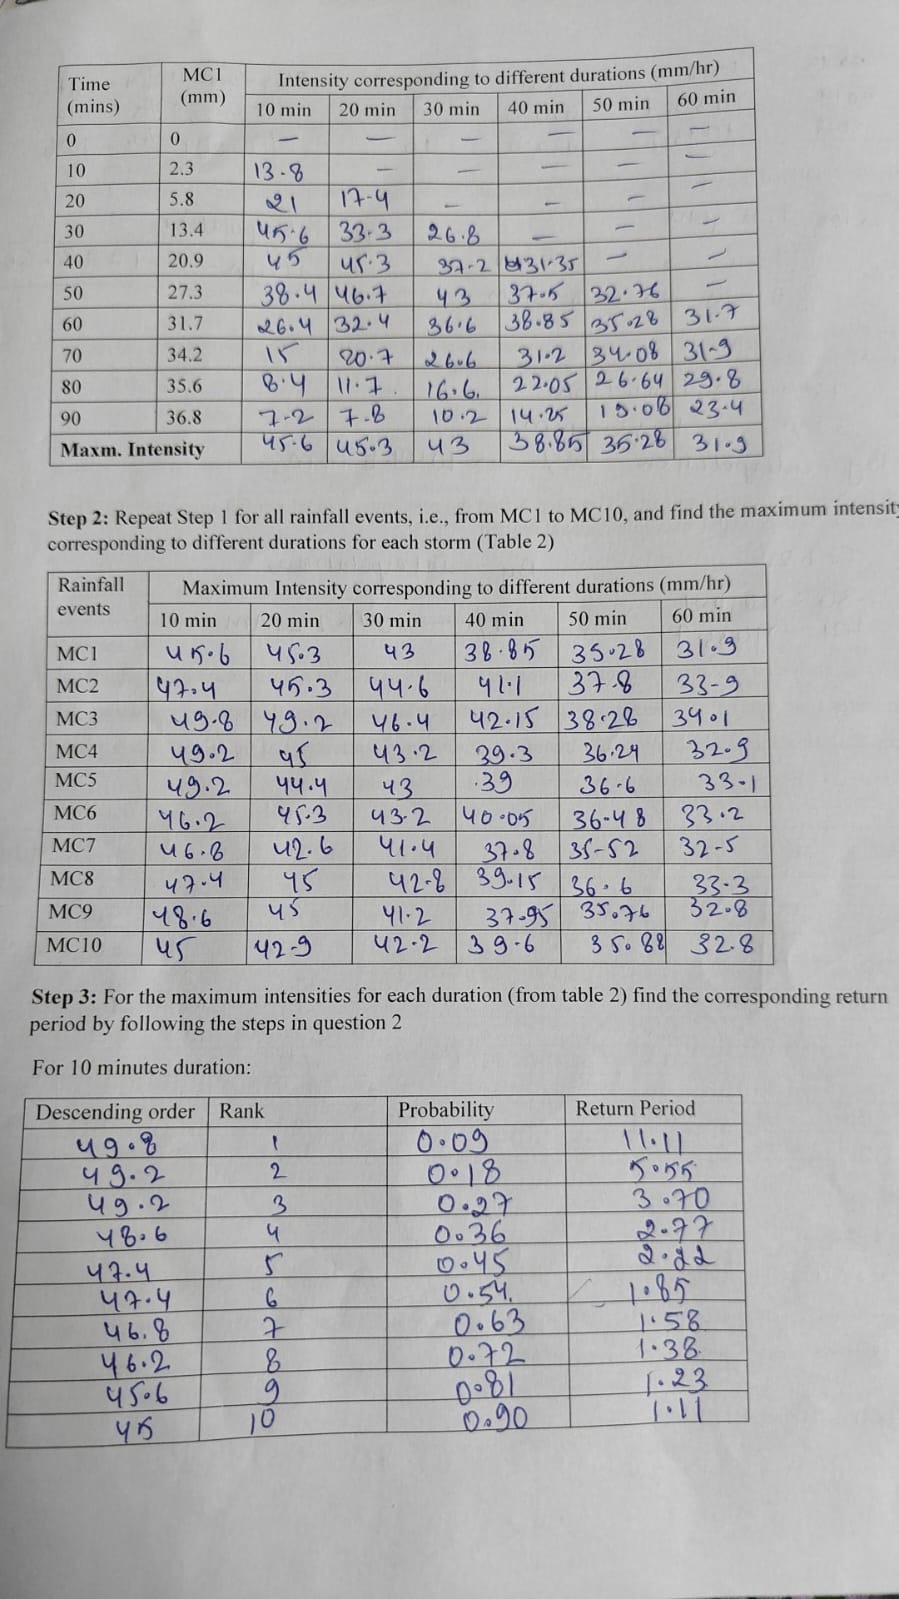 Time (mins) MC1 (mm) Intensity corresponding to different durations (mm/hr)
10 min 20 min 30 min 40 min 50 min 60 min
0 0 — — — — — —
10 2.3 13.8 — — — — —
20 5.8 21 17.4 — — — —
30 13.4 45.6 33.3 26.8 — — —
40 20.9 45 45.3 37.2 31.35 — —
50 27.3 38.4 46.7 43 37.5 32.76 —
60 31.7 26.4 32.4 36.6 38.85 35.28 31.7
70 34.2 15 20.7 26.6 31.2 34.08 31.9
80 35.6 8.4 11.7 16.6 22.05 26.64 29.8
90 36.8 7.2 7.8 10.2 14.25 19.08 23.4
Maxm. Intensity 45.6 45.3 43 38.85 35.28 31.9
Step 2: Repeat Step 1 for all rainfall events, i.e., from MC1 to MC10, and find the maximum intensity
corresponding to different durations for each storm (Table 2)
Rainfall events Maximum Intensity corresponding to different durations (mm/hr)
10 min 20 min 30 min 40 min 50 min 60 min
MC1 45.6 45.3 43 38.85 35.28 31.9
MC2 47.4 45.3 44.6 41.1 37.8 33.9
MC3 49.8 49.2 46.4 42.15 38.28 34.1
MC4 49.2 45 43.2 39.3 36.24 32.9
MC5 49.2 44.4 43 39 36.6 33.1
MC6 46.2 45.3 43.2 40.05 36.48 33.2
MC7 46.8 42.6 41.4 37.8 35.52 32.5
MC8 47.4 45 42.8 39.15 36.6 33.3
MC9 48.6 45 41.2 37.95 35.76 32.8
MC10 45 42.9 42.2 39.6 35.88 32.8
Step 3: For the maximum intensities for each duration (from table 2) find the corresponding return
period by following the steps in question 2
For 10 minutes duration:
Descending order Rank Probability Return Period
49.8 1 0.09 11.11
49.2 2 0.18 5.55
49.2 3 0.27 3.70
48.6 4 0.36 2.77
47.4 5 0.45 2.22
47.4 6 0.54 1.85
46.8 7 0.63 1.58
46.2 8 0.72 1.38
45.6 9 0.81 1.23
45 10 0.90 1.11